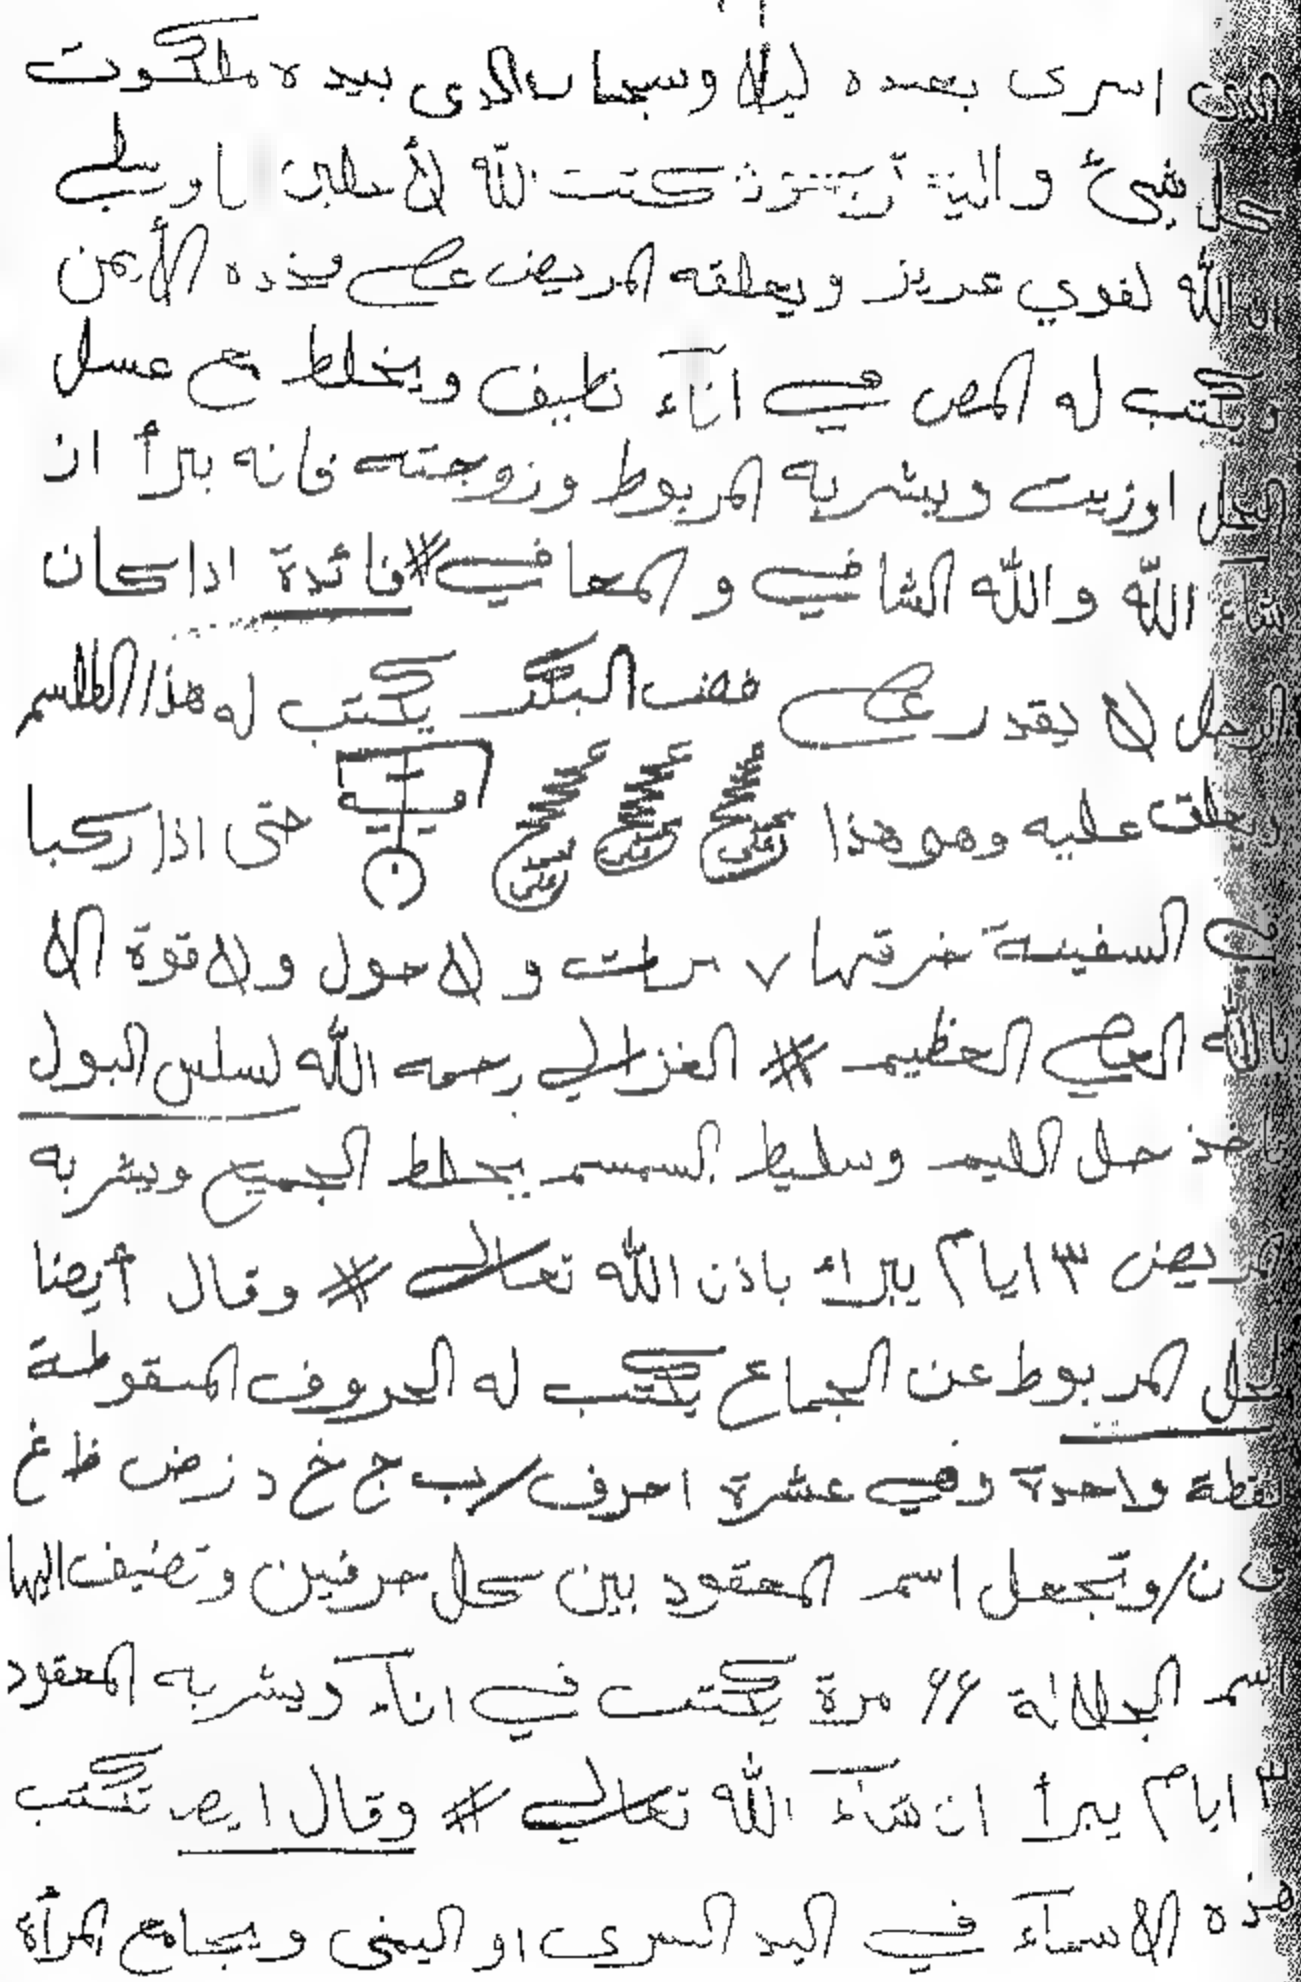 الذي اسرى بعبده ليلا وسبحان الذى بيده ملكوت
كل شيئ واليه ترجعون كتب الله لأغلبن انا ورسلي
ان الله لقوي عزيز ويعلقه المريض على فخذه الأيمن
ويكتب له المص في انآء نظيف ويخلط مع عسل
نحل اوزيت ويشربه المربوط وزوجته فانه يبرأ ان
شاء الله والله الشافي والمعافي # فائدة اذا كان
الرجل لا يقدر على فض البكر يكتب له هذا الطلسم
ويعلق عليه وهو هذا حتى اذا ركبا
في السفينة خرقها ٧ مرات ولا حول ولا قوة الا
بالله العلي العظيم # الغزالي رحمه الله لسلس البول
تاخذ خل الليم وسليط السمسم يخلط الجميع ويشربه
المريض ٣ ايام يبراء باذن الله تعالى # وقال أيضا
لحل المربوط عن الجماع يكتب له الحروف المنقوطة
نقطة واحدة وهي عشرة احرف / ب ج خ ذ ز ض ظ غ
ف ن / وتجعل اسم المعقود بين كل حرفين وتضيف اليها
اسم الجلالة ٦٦ مرة يكتب في انآء ويشربه المعقود
٣ ايام يبرأ ان شآء الله تعالي # وقال ايض تكتب
هذه الاسمآء في اليد اليسرى او اليمنى ويجامع المرأة